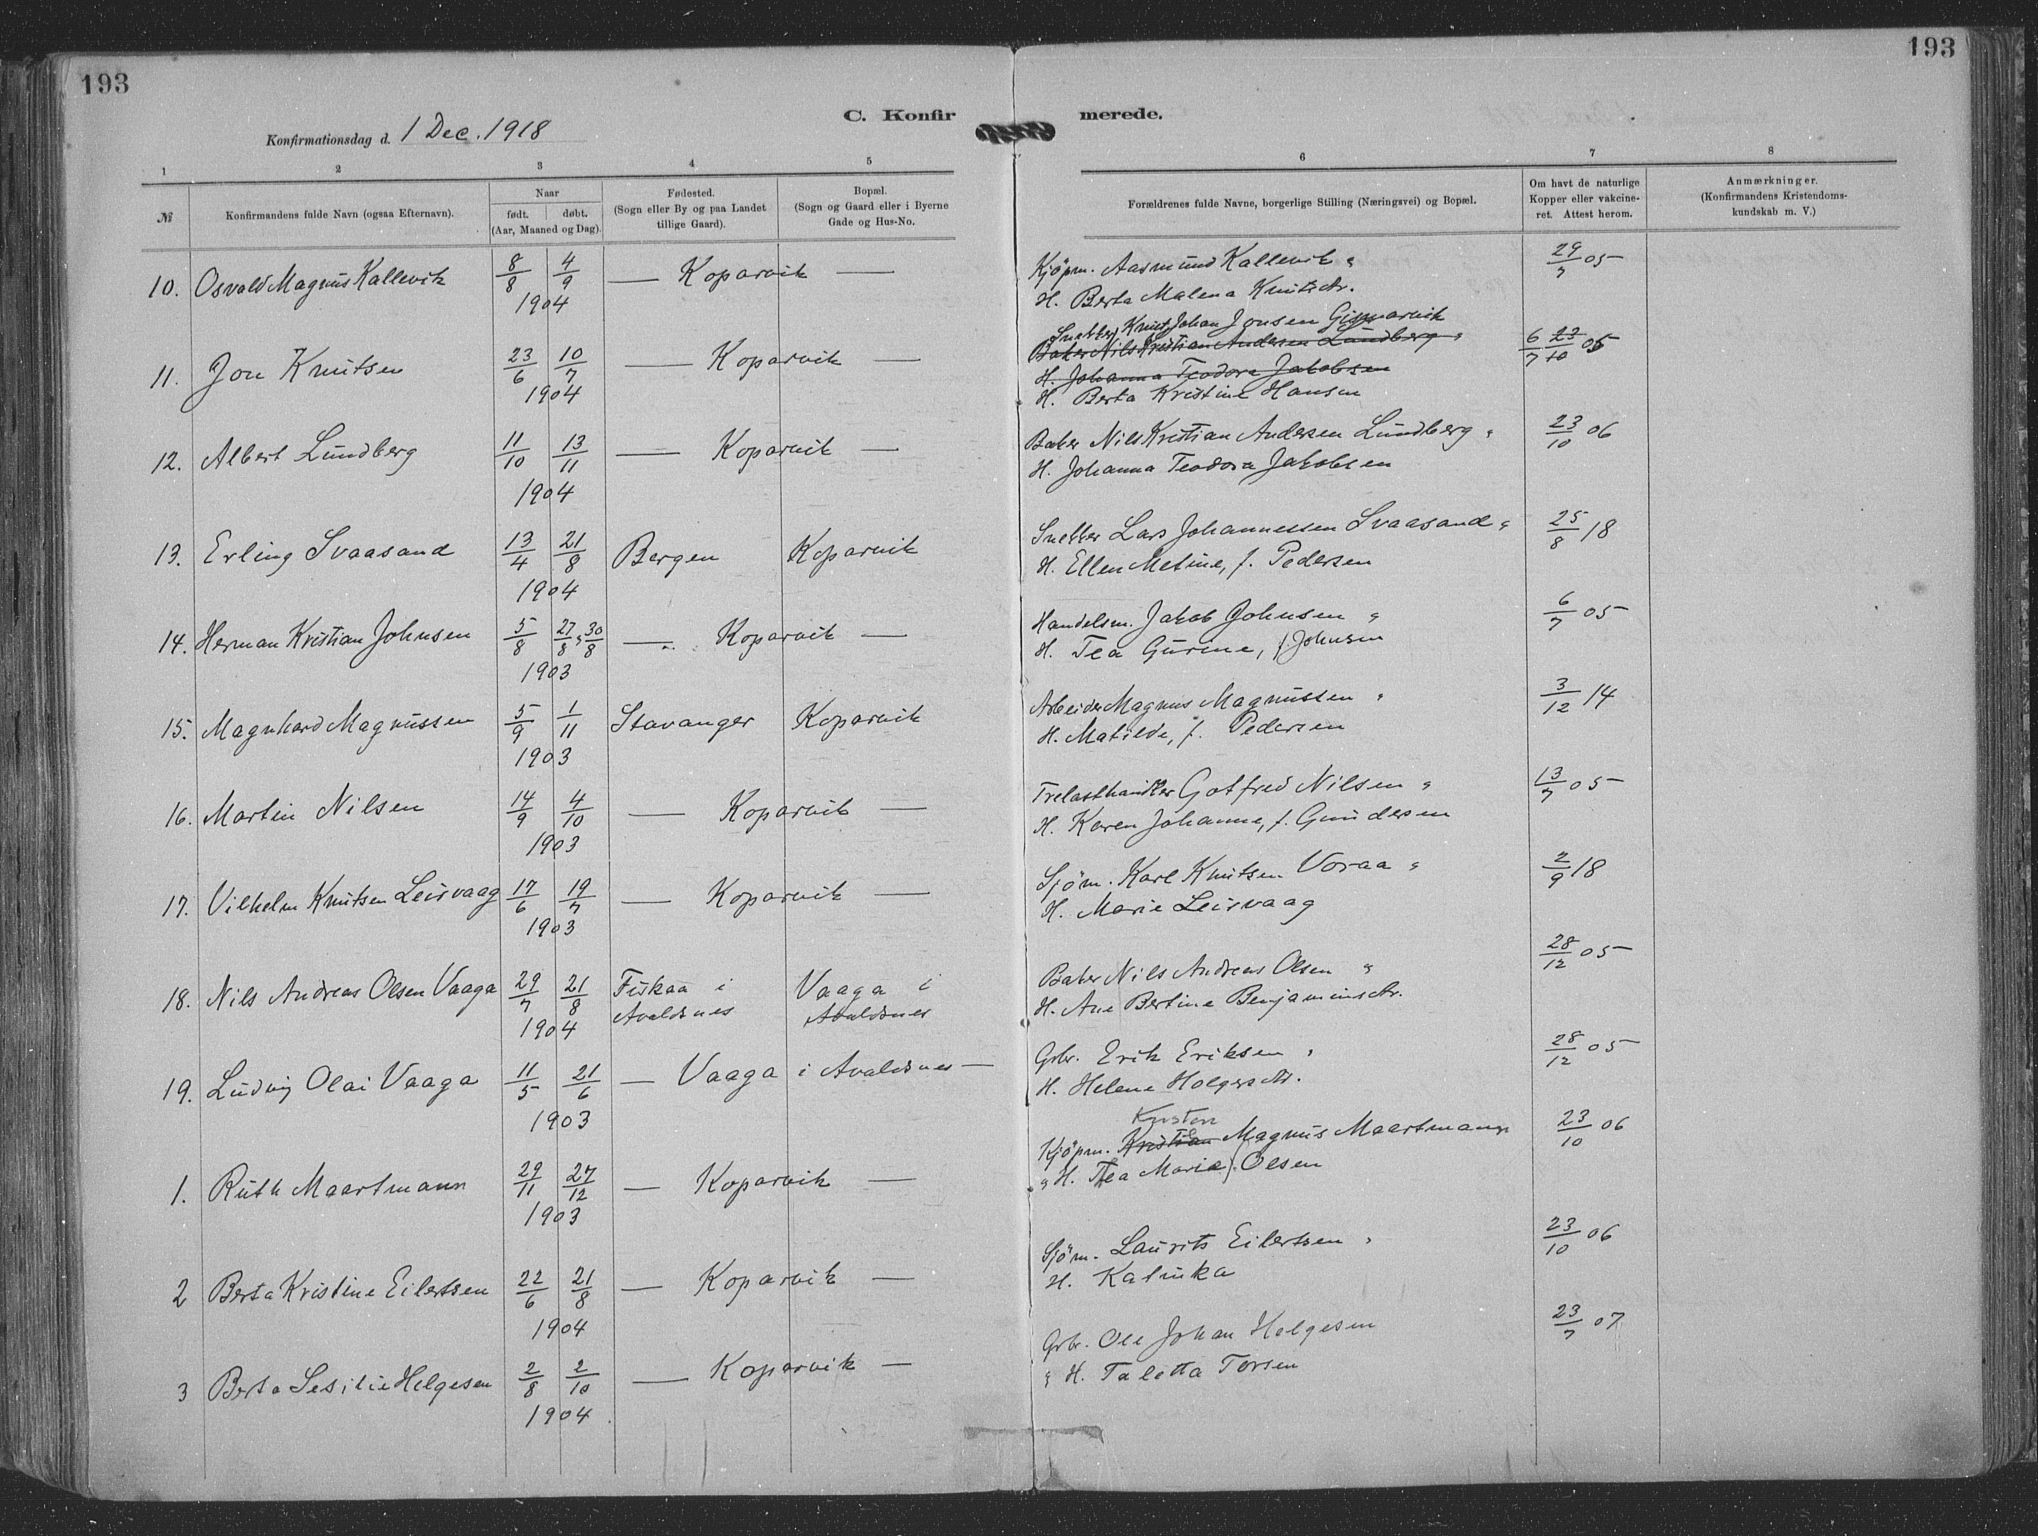 193
193
C. Konfirmerede.
Konfirmationsdag d. 1 Dec. 1918
1 2 3 4 5 6 7 8
№
Konfirmandens fulde Navn (ogsaa Efternavn).
Naar
født. døbt.
(Aar, Maaned og Dag).
Fødested.
(Sogn eller By og paa Landet
tillige Gaard).
Bopæl.
(Sogn og Gaard eller i Byerne
Gade og Hus-No.
Forældrenes fulde Navne, borgerlige Stilling (Næringsvei) og Bopæl.
Om havt de naturlige
Kopper eller vakcine-
ret. Attest herom.
Anmærkninger.
(Konfirmandens Kristendoms-
kundskab m. V.)
10. Osvald Magnus Kallevik 8/8 4/9 — Koparvik — Kjöpm. Aasmund Kallevik " 29/7 05
1904 H. Berta Malena Knutsdtr.
Snekker Knut Johan Jonsen Gismarvik
11. Jon Knutsen 23/6 10/7 — Koparvik — Baker Nils Kristian Andersen Lundberg " 6/7 23/10 05
H. Johanna Teodora Jakobsen
1904 H. Berta Kristine Hansen
12. Albert Lundberg 11/10 13/11 — Koparvik — Baker Nils Kristian Andersen Lundberg " 23/10 06
1904 H. Johanna Teodora Jakobsen
13. Erling Svaasand 13/4 21/8 Bergen Koparvik Snekker Lars Johannessen Svaasand " 25/8 18
1904 H. Ellen Metine, f. Pedersen
14. Herman Kristian Johnsen 5/8 27/8, 30/8 — Koparvik — Handelsm. Jakob Johnsen " 6/7 05
1903 H. Tea Gurine, f Johnsen
15. Magnhard Magnussen 5/9 1/11 Stavanger Koparvik Arbeider Magnus Magnussen " 3/12 14
1903 H. Matilde, f. Pedersen
16. Martin Nilsen 14/9 4/10 — Koparvik — Trelasthandler Gotfred Nilsen " 13/7 05
1903 H. Karen Johanne, f. Gundersen
17. Vilhelm Knutsen Leirvaag 17/6 19/7 — Koparvik — Sjöm. Karl Knutsen Voraa " 2/9 18
1903 H. Marie Leirvaag
18. Nils Andreas Olsen Vaaga 29/7 21/8 Fiskaa i Vaaga i Baker Nils Andreas Olsen " 28/12 05
Avaldsnes Avaldsnes
1904 H. Ane Bertine Benjaminsdtr.
19. Ludvig Olai Vaaga 11/5 21/6 — Vaaga i Avaldsnes — Grbr. Erik Eriksen " 28/12 05
1903 H. Helene Holgersdtr.
Kristen
1. Ruth Maartmann 29/11 27/12 — Koparvik — Kjöpm. Kristian Magnus Maartmann 23/10 06
1903 " H. Thea Marie f. Olsen
2 Berta Kristine Eilertsen 22/6 21/8 — Koparvik — Sjöm. Laurits Eilertsen " 23/10 06
1904 H. Kalinka
3 Berta Sesilie Helgesen 2/8 2/10 — Koparvik — Grbr. Ole Johan Helgesen 23/7 07
1904 " H. Taletta Torsen